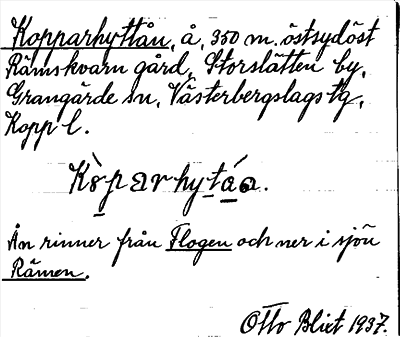 Kopparhyttån, å, 350 m. östsydöst
Rämskvarn gård, Storslätten by,
Grangärde sn, Västerbergslags tg,
Kopp l.
Kòparhytáa.
Ån rinner från Flogen och ner i sjön
Rämen.
Otto Blixt 1937.